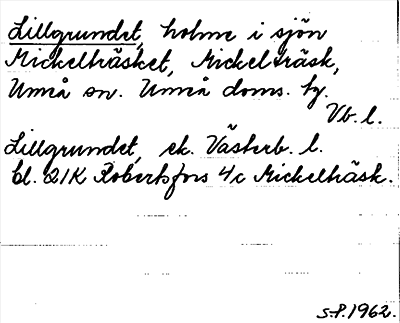 Lillgrundet, holme i sjön
Mickelträsket, Mickelträsk,
Umeå sn. Umeå doms. hg.
Vb. l.
Lillgrundet, ek. Västerb. l.
bl. 21K Robertsfors 4c Mickelträsk.
S.P. 1962.